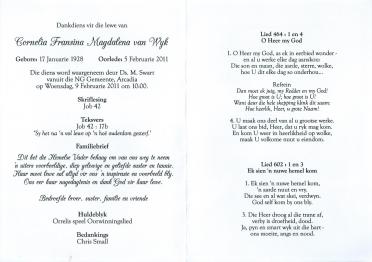 Dankdiens vir die lewe van
Cornelia Fransina Magdalena van Wyk
Gebore: 17 Januarie 1928 Oorlede: 5 Februarie 2011
Die diens word waargeneem deur Ds. M. Swart
vanuit die NG Gemeente, Arcadia
op Woensdag, 9 Februarie 2011 om 10:00.
Skriflesing
Job 42
Teksvers
Job 42 : 17b
Familiebrief
Dit het die Hemelse Vader behaag om van ons weg te neem
Bedroefde broer, suster, familie en vriende
Huldeblyk
Orrelis speel Oorwinningslied
Bedankings
Chris Small
Lied 464 : 1 en 4
O Heer my God
1. O Heer my God, as ek in eerbied wonder -
en al u werke elke dag aanskou:
Die son en maan, die aarde, sterre, wolke,
hoe U dit elke dag so onderhou...
Refrein
Dan moet ek juig, my Redder en my God!
Hoe groot is U; hoe groot is U!
Want deur die hele skepping klink dit saam:
Hoe heerlik, Heer, is u grote naam!
4. U maak ons deel van al u grootse werke.
U laat ons bid, Heer, dat u ryk mag kom.
En kom U weer in heerlikheid op wolke,
maak U volkome nuut u eiendom.
Lied 602 : 1 en 3
Ek sien 'n nuwe hemel kom
1. Ek sien 'n nuwe hemel kom,
'n aarde nuut en vry.
Die see en al wat skei, verdwyn.
God self kom by ons bly.
3. Die Heer droog al die trane af,
verby is droefheid, dood.
Ja, pyn en smart wyk uit die hart -
ons moeite, angs en nood.